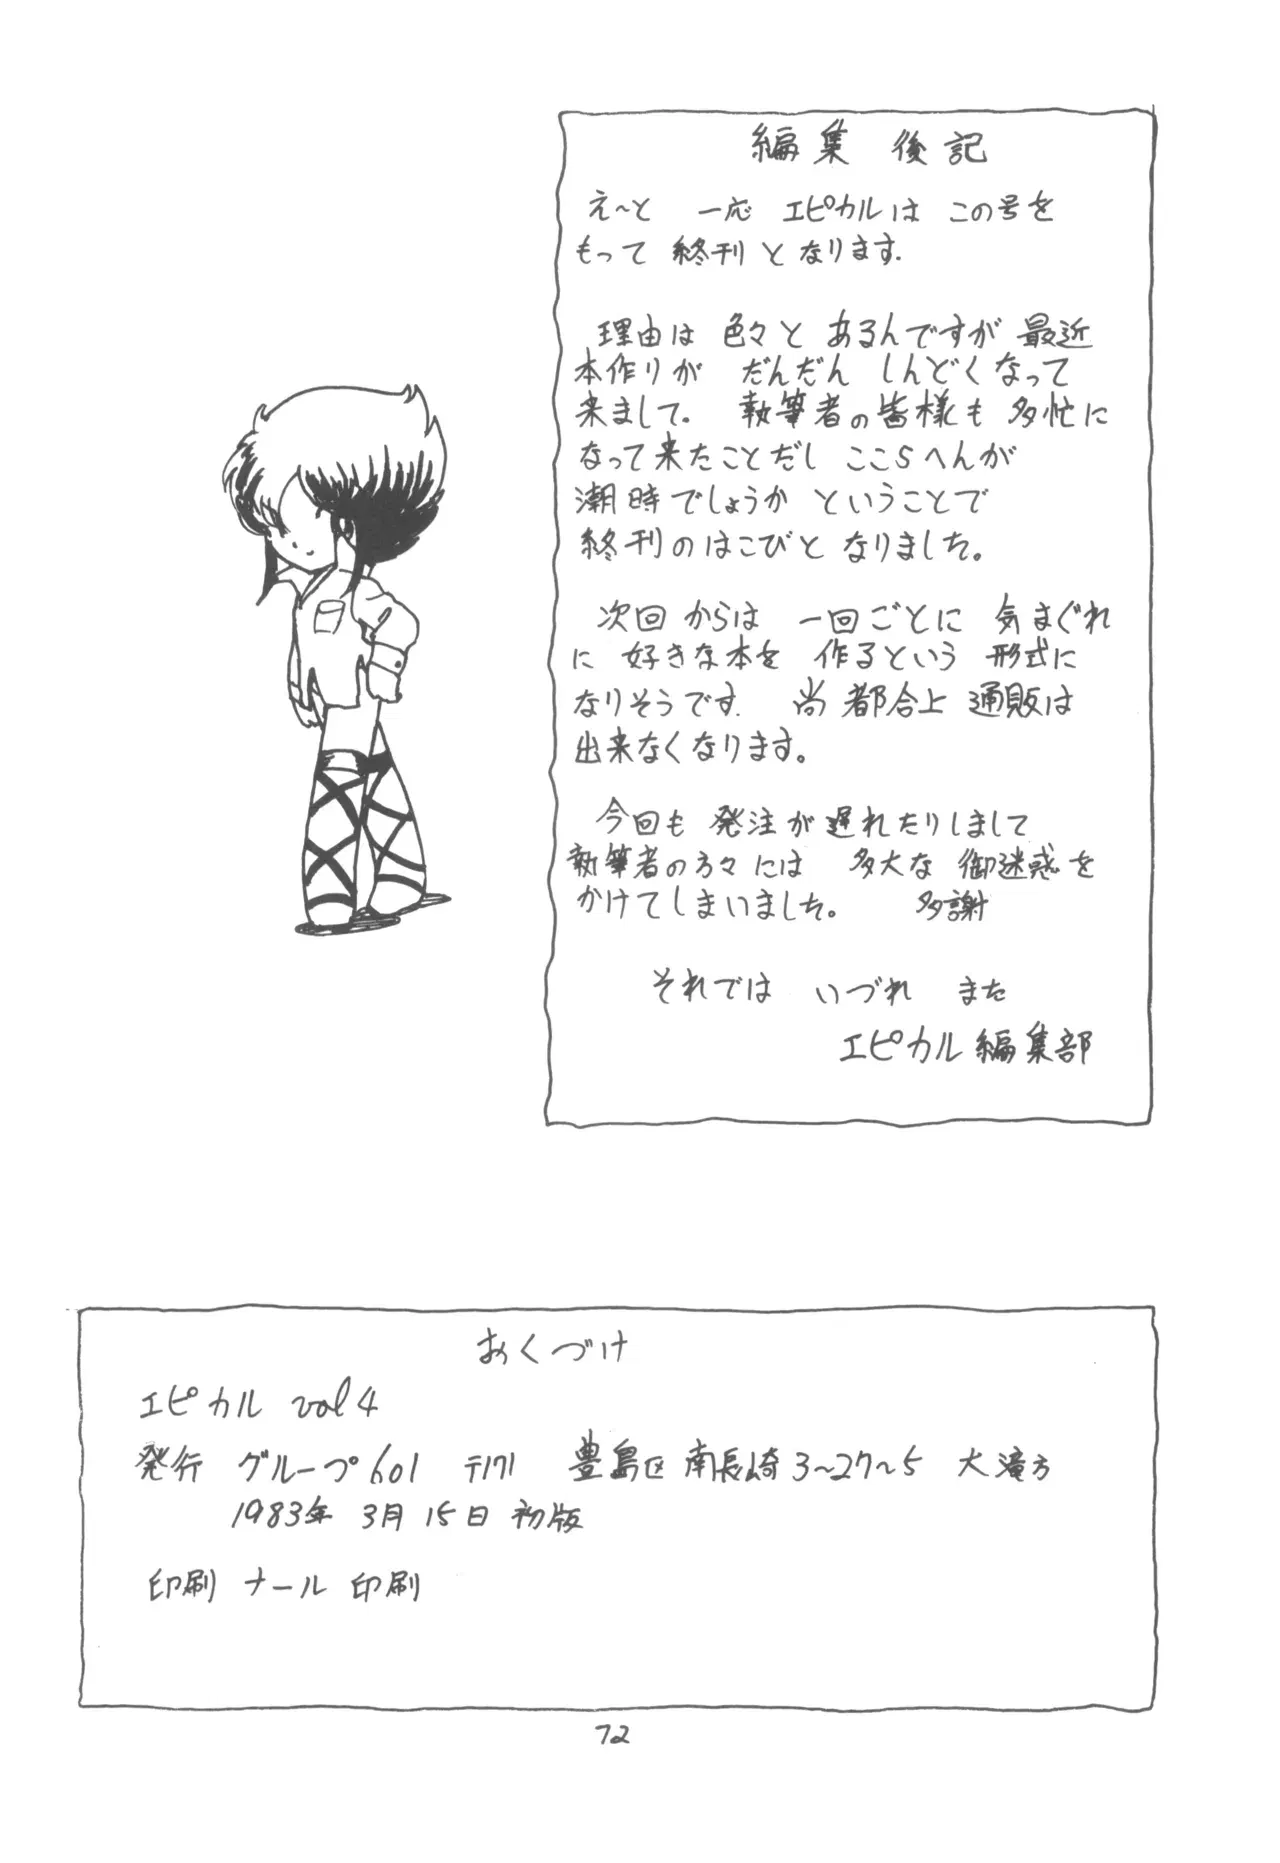 編集 後記
え〜と 一応 エピカルは この号を
もって 終刊 と なります.
理由は 色々と あるんですが 最近
本作りが だんだん しんどくなって
来まして。 執筆者の皆様も 多忙に
なって来たことだし ここらへんが
潮時でしょうか ということで
終刊のはこびと なりました。
次回 からは 一回ごとに 気まぐれ
に 好きな本を 作るという 形式に
なりそうです. 尚 都合上 通販は
出来なくなります。
今回も 発注が 遅れたりしまして
執筆者の方々には 多大な 御迷惑を
かけてしまいました。 多謝
それでは いづれ また
エピカル 編集部
おくづけ
エピカル vol 4
発行 グループ601 〒171 豊島区 南長崎 3〜27〜5 大滝方
1983年 3月 15日 初版
印刷 ナール 印刷
72